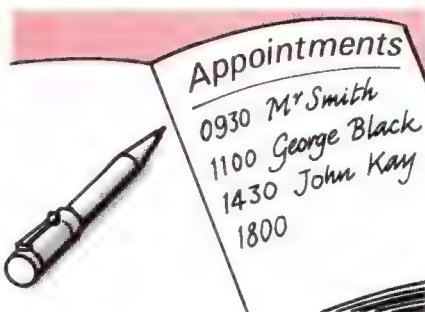 Appointments
0930 Mr Smith
1100 George Black
1430 John Kay
1800